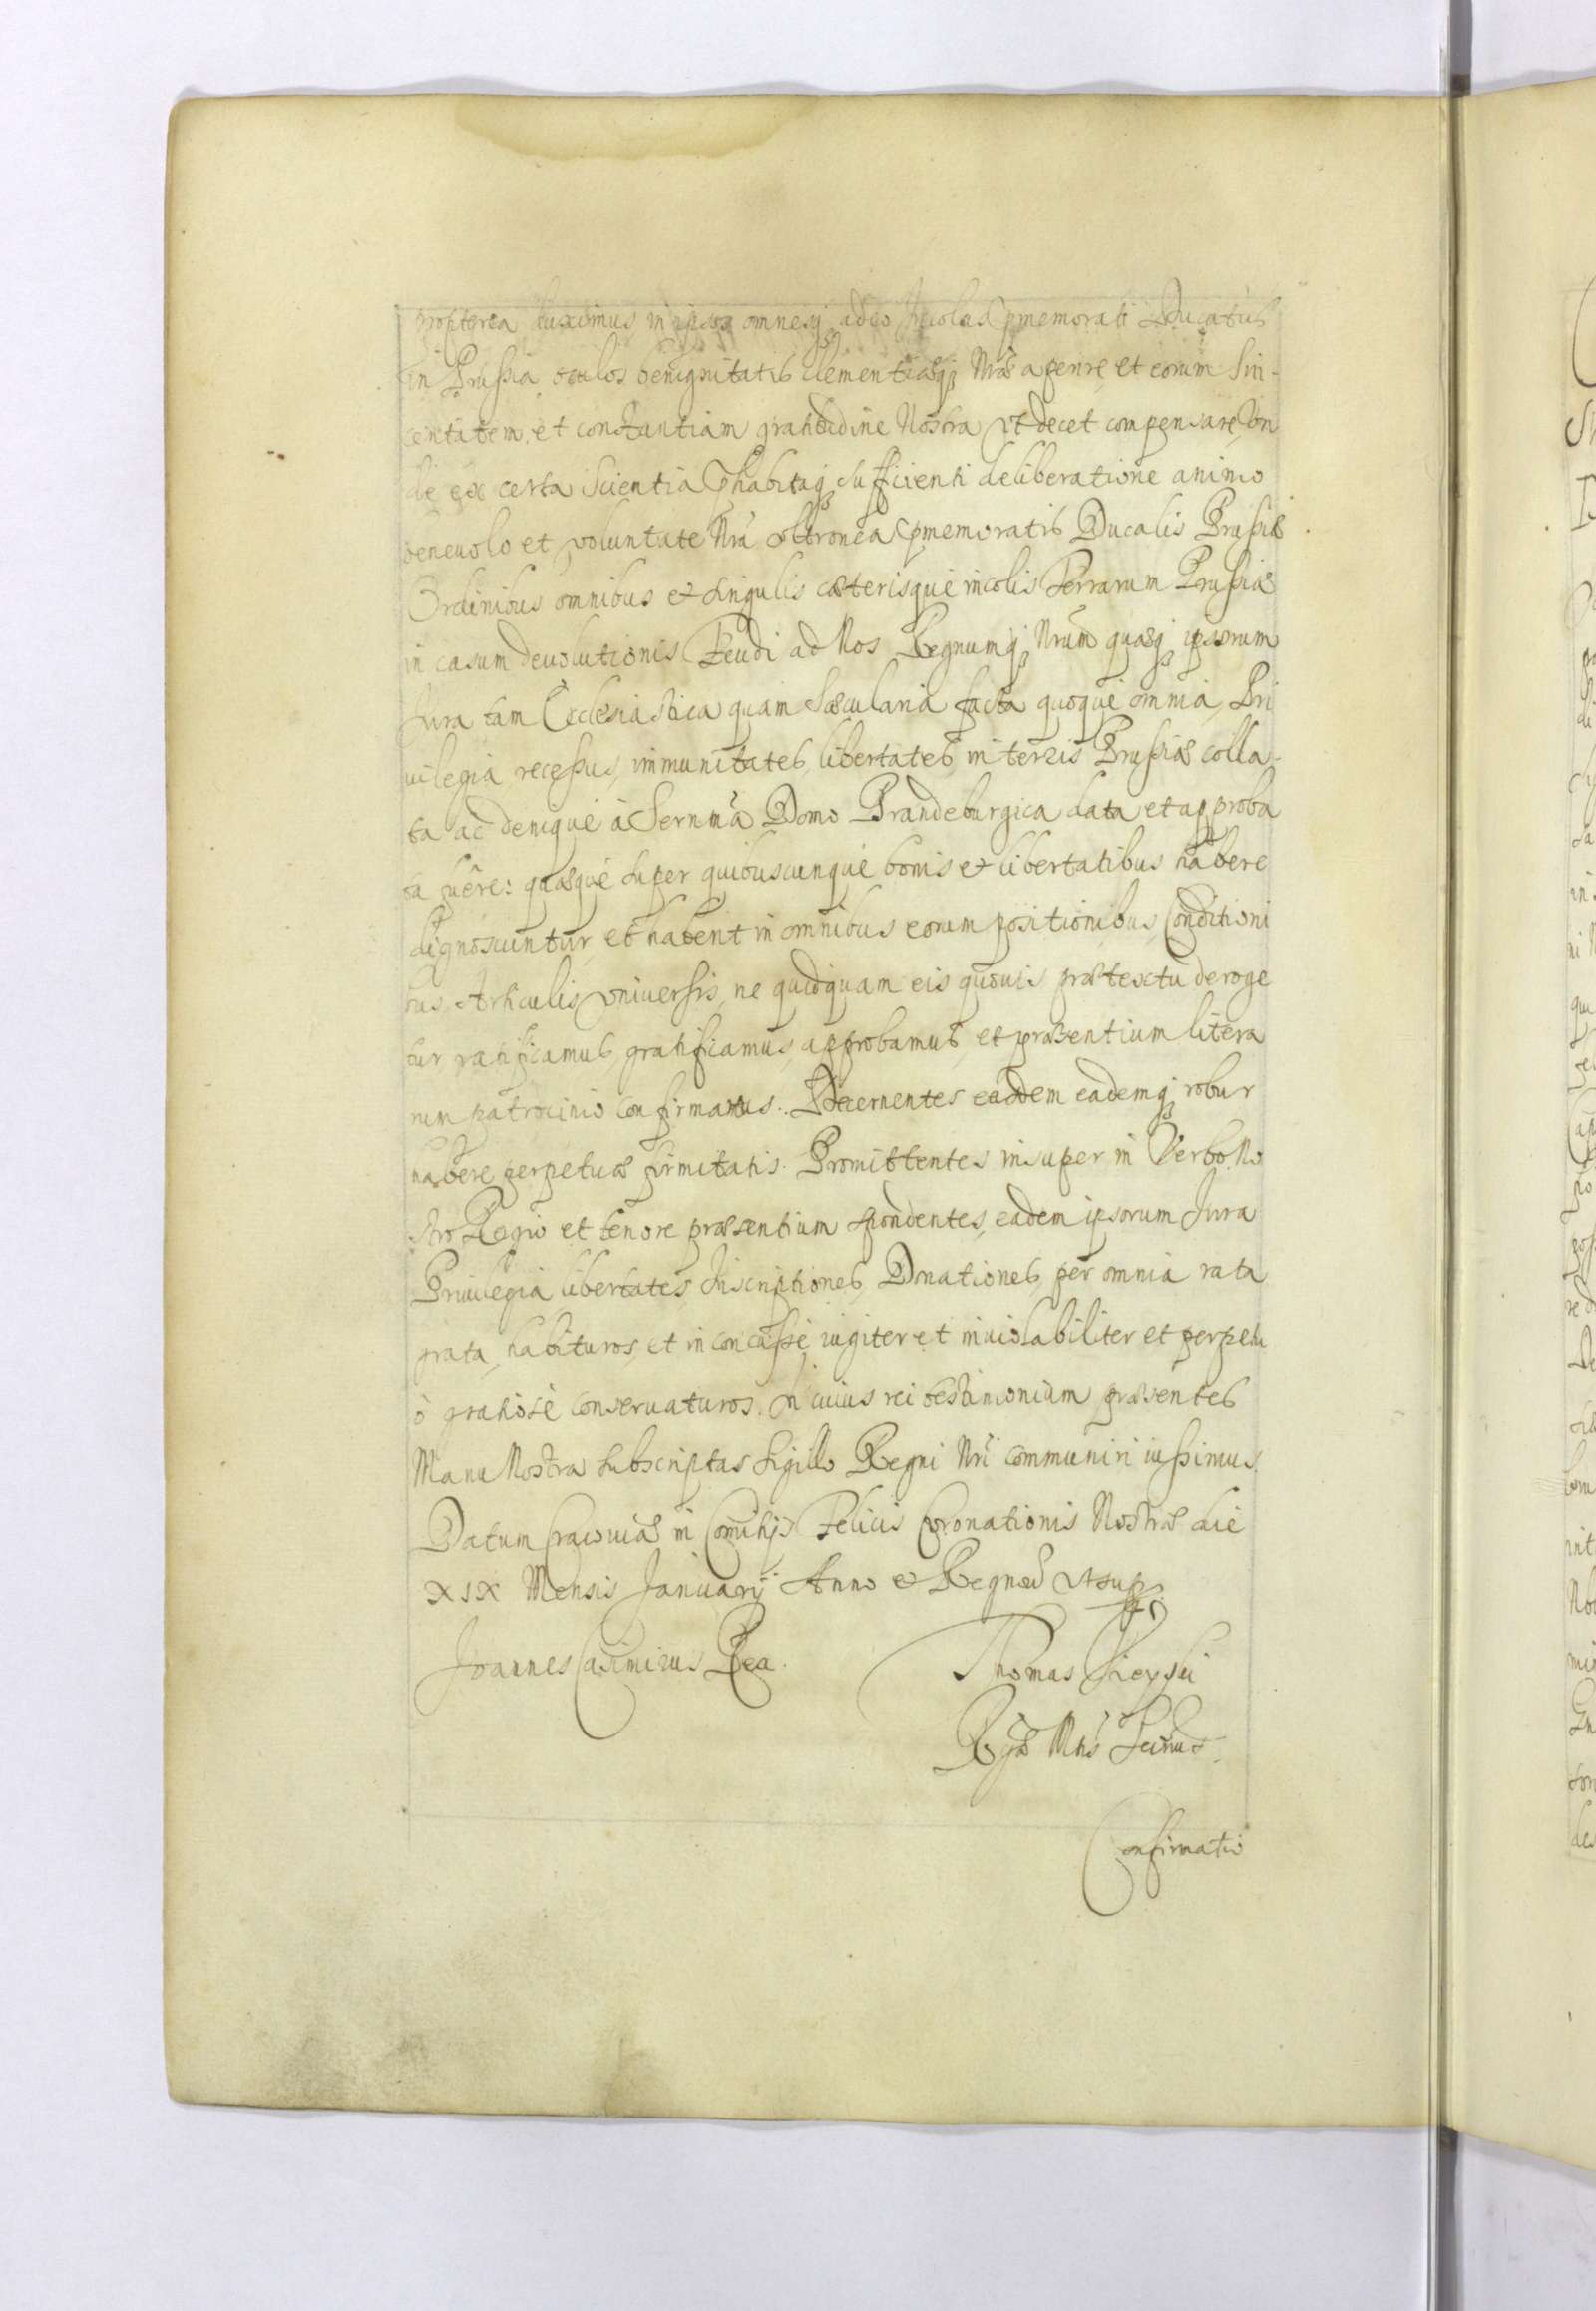 propterea duximus in ipsos omnesq adeo Incolas pmemorati Ducatus
in Prussia oculos benignitatis clementiæq Nræ aperire et eorum Sin-
ceritatem, et constantiam gratitudine Nostra vt decet compensare, vn
de ex certa Scientia phabitaq sufficienti deliberatione animo
beneuolo et voluntate Nra vltronea pmemoratis Ducalis Prussiæ
Ordinibus omnibus et singulis cæterisque incolis Terrarum Prussiæ
in casum deuolutionis Feudi ad Nos Regnumq Nrum quæq ipsorum
Jura tam Ecclesiastica quam Sæcularia facta quoque omnia, Pri
uilegia recessus, immunitates, libertates, in terris Prussiæ colla-
ta ac denique à Sernma Domo Brandeburgica data et approba
ta fuêre: quæque super quibuscunque bonis et libertatibus habere
dignoscuntur, et habent in omnibus eorum positionibus, Conditioni
bus, Articulis vniuersis, ne quidquam eis quouis prætextu deroge
tur ratificamus, gratificamus, approbamus, et præsentium litera
rum patrocinio confirmamus. Decernentes eadem eademq robur
habere perpetuæ firmitatis. Promittentes insuper in Verbo No
stro Regio et tenore præsentium spondentes, eadem ipsorum Jura
Priuilegia libertates, Inscriptiones, Donationes, per omnia rata
grata, habituros, et inconcusse iugiter et inuiolabiliter et perpetu
ò gratiosè conseruaturos. In cuius rei testimonium præsentes
Manu Nostra subscriptas Sigillo Regni Nri communiri iussimus.
Datum Cracouiæ in Comitijs Felicis Coronationis Nostræ die
XIX Mensis Januarij Anno et Regno vt sup
Joannes Casimirus Rex.
Thomas
R Mtis
Confirmatio